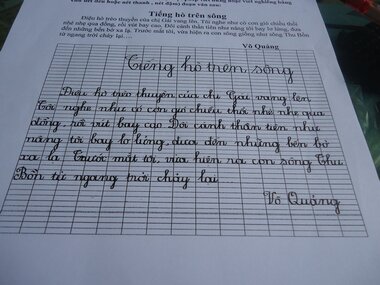 Tiếng hò trên sông
Điệu hò trên thuyền của chị Gái vang lên. Tôi nghe như có cơn gió chiều thổi
nhẹ nhẹ qua đồng, rồi vút bay cao. Đôi cánh thần tiên như nâng tôi bay lơ lửng, đưa
đến những bến bờ xa lạ. Trước mắt tôi, vừa hiện ra con sông giống như sông Thu Bồn
từ ngang trời chảy lại...
Võ Quảng
Tiếng hò trên sông
Điệu hò trên thuyền của chị Gái vang lên
Tôi nghe như có cơn gió chiều thổi nhè nhẹ qua
đồng rồi vút bay cao Đôi cánh thần tiên như
nâng tôi bay lơ lửng, đưa đến những bến bờ
xa lạ Trước mắt tôi, vừa hiện ra con sông Thu
Bồn từ ngang trời chảy lại
Võ Quảng